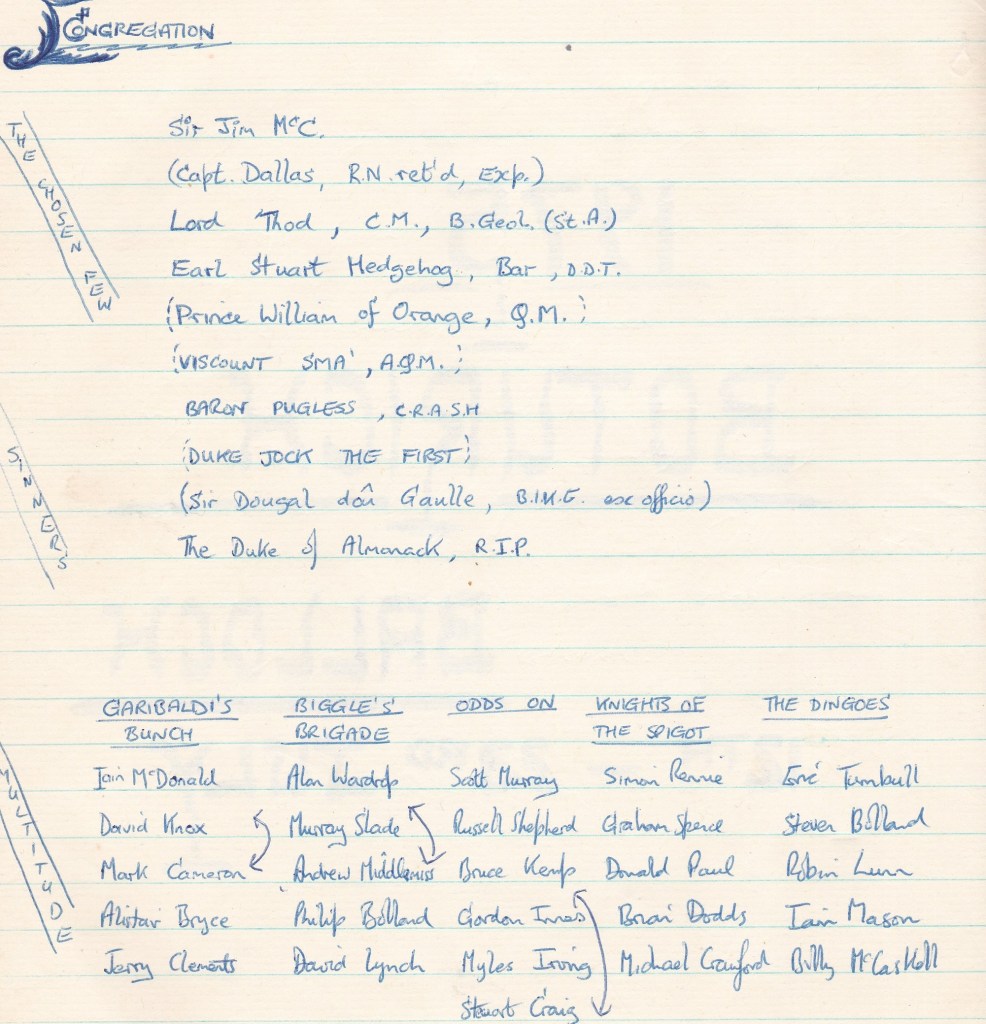 CONGREGATION
THE CHOSEN FEW
Sir Jim McC.
(Capt. Dallas, R.N. ret'd, Exp.)
Lord Thod, C.M., B.Geol. (St.A.)
Earl Stuart Hedgehog, Bar, D.D.T.
(Prince William of Orange, Q.M.)
(VISCOUNT SMA', A.Q.M.)
BARON PUGLESS, C.R.A.S.H
(DUKE JOCK THE FIRST)
SINNERS
(Sir Dougal doû Gaulle, B.I.K.E. ex officio)
The Duke of Almanack, R.I.P.
MULTITUDE
GARIBALDI'S BIGGLE'S ODDS ON KNIGHTS OF THE DINGOES
BUNCH BRIGADE THE SPIGOT
Iain McDonald Alan Wardrop Scott Murray Simon Rennie Eric Turnbull
David Knox Murray Slade Russell Shepherd Graham Spence Steven Bolland
Mark Cameron Andrew Middlemiss Bruce Kemp Donald Paul Robin Lunn
Alistair Bryce Philip Bolland Gordon Innes Brian Dodds Iain Mason
Jerry Clements David Lynch Myles Irving Michael Crawford Billy McCaskell
Stewart Craig